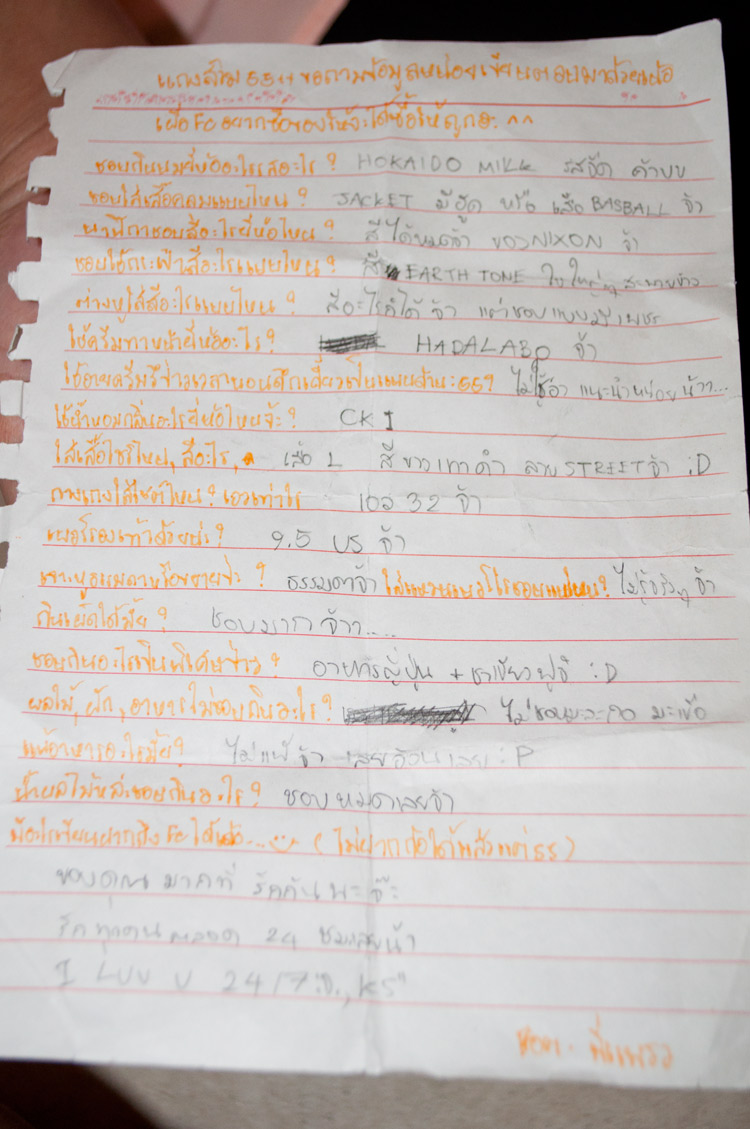 ขอถามข้อมูลหน่อยเขียนตอบมาด้วยเน้อ
เผื่อ Fc อยากซื้อของให้จะได้ซื้อให้ถูกอะ ^^
ชอบกินนมยี่ห้ออะไรรสอะไร? HOKAIDO MILK รสจืด ค้าบบ
ชอบใส่เสื้อคลุมแบบไหน? JACKET มีฮู้ด หรือ เสื้อ BASBALL จ้า
นาฬิกาชอบสีอะไรยี่ห้อไหน? สีได้หมดจ้า ของ NIXON จ้า
ชอบใช้กระเป๋าสีอะไรแบบไหน? สี EARTH TONE ใบใหญ่ๆ สะพายข้าง
ต่างหูใส่สีอะไรแบบไหน? สีอะไรก็ได้จ้า แต่ชอบแบบมีเพชร
ใช้ครีมทาหน้ายี่ห้ออะไร? HADALABO จ้า
ใช้อายครีมรึป่าวเวลานอนดึกเดี๋ยวเป็นแพนด้านะ 55? ไม่ใช้อ่า แนะนำหน่อยน้าา...
ใช้น้ำหอมกลิ่นอะไรยี่ห้อไหนจ้ะ? CK I
ใส่เสื้อไซร์ไหน, สีอะไร, เสื้อ L สี ขาว เทา ดำ ลาย STREET จ้า :D
กางเกงใส่ไซต์ไหน? เอวเท่าไร เอว 32 จ้า
เบอร์รองเท้าด้วยน่ะ? 9.5 US จ้า
เจาะหูแบบลานหรือขยายป่ะ? ธรรมดาจ้า ใส่แหวนเบอร์ไรชอบแบบไหน? ไม่รู้จริงๆ จ้า
กินเผ็ดได้มั้ย? ชอบมาก จ้าา....
ชอบกินอะไรเป็นพิเศษป่าว? อาหารญี่ปุ่น + ชาเขียวฟูจิ :D
ผลไม้, ผัก, อาหารไม่ชอบกินอะไร? ไม่ชอบมะละกอ มะเขือ
แพ้อาหารอะไรมั้ย? ไม่แพ้จ้า เลยอ้วนเลย :P
น้ำผลไม้หล่ะชอบกินอะไร? ชอบหมดเลยจ้า
มีอะไรเขียนฝากถึง Fc ได้เน้อ... (ไม่ฝากก้อได้แล้วแต่ 55)
ขอบคุณ มากที่ รักกัน นะจ๊ะ
รักทุกคน ตลอด 24 ชม.เลยน้า
I LUV U 24/7